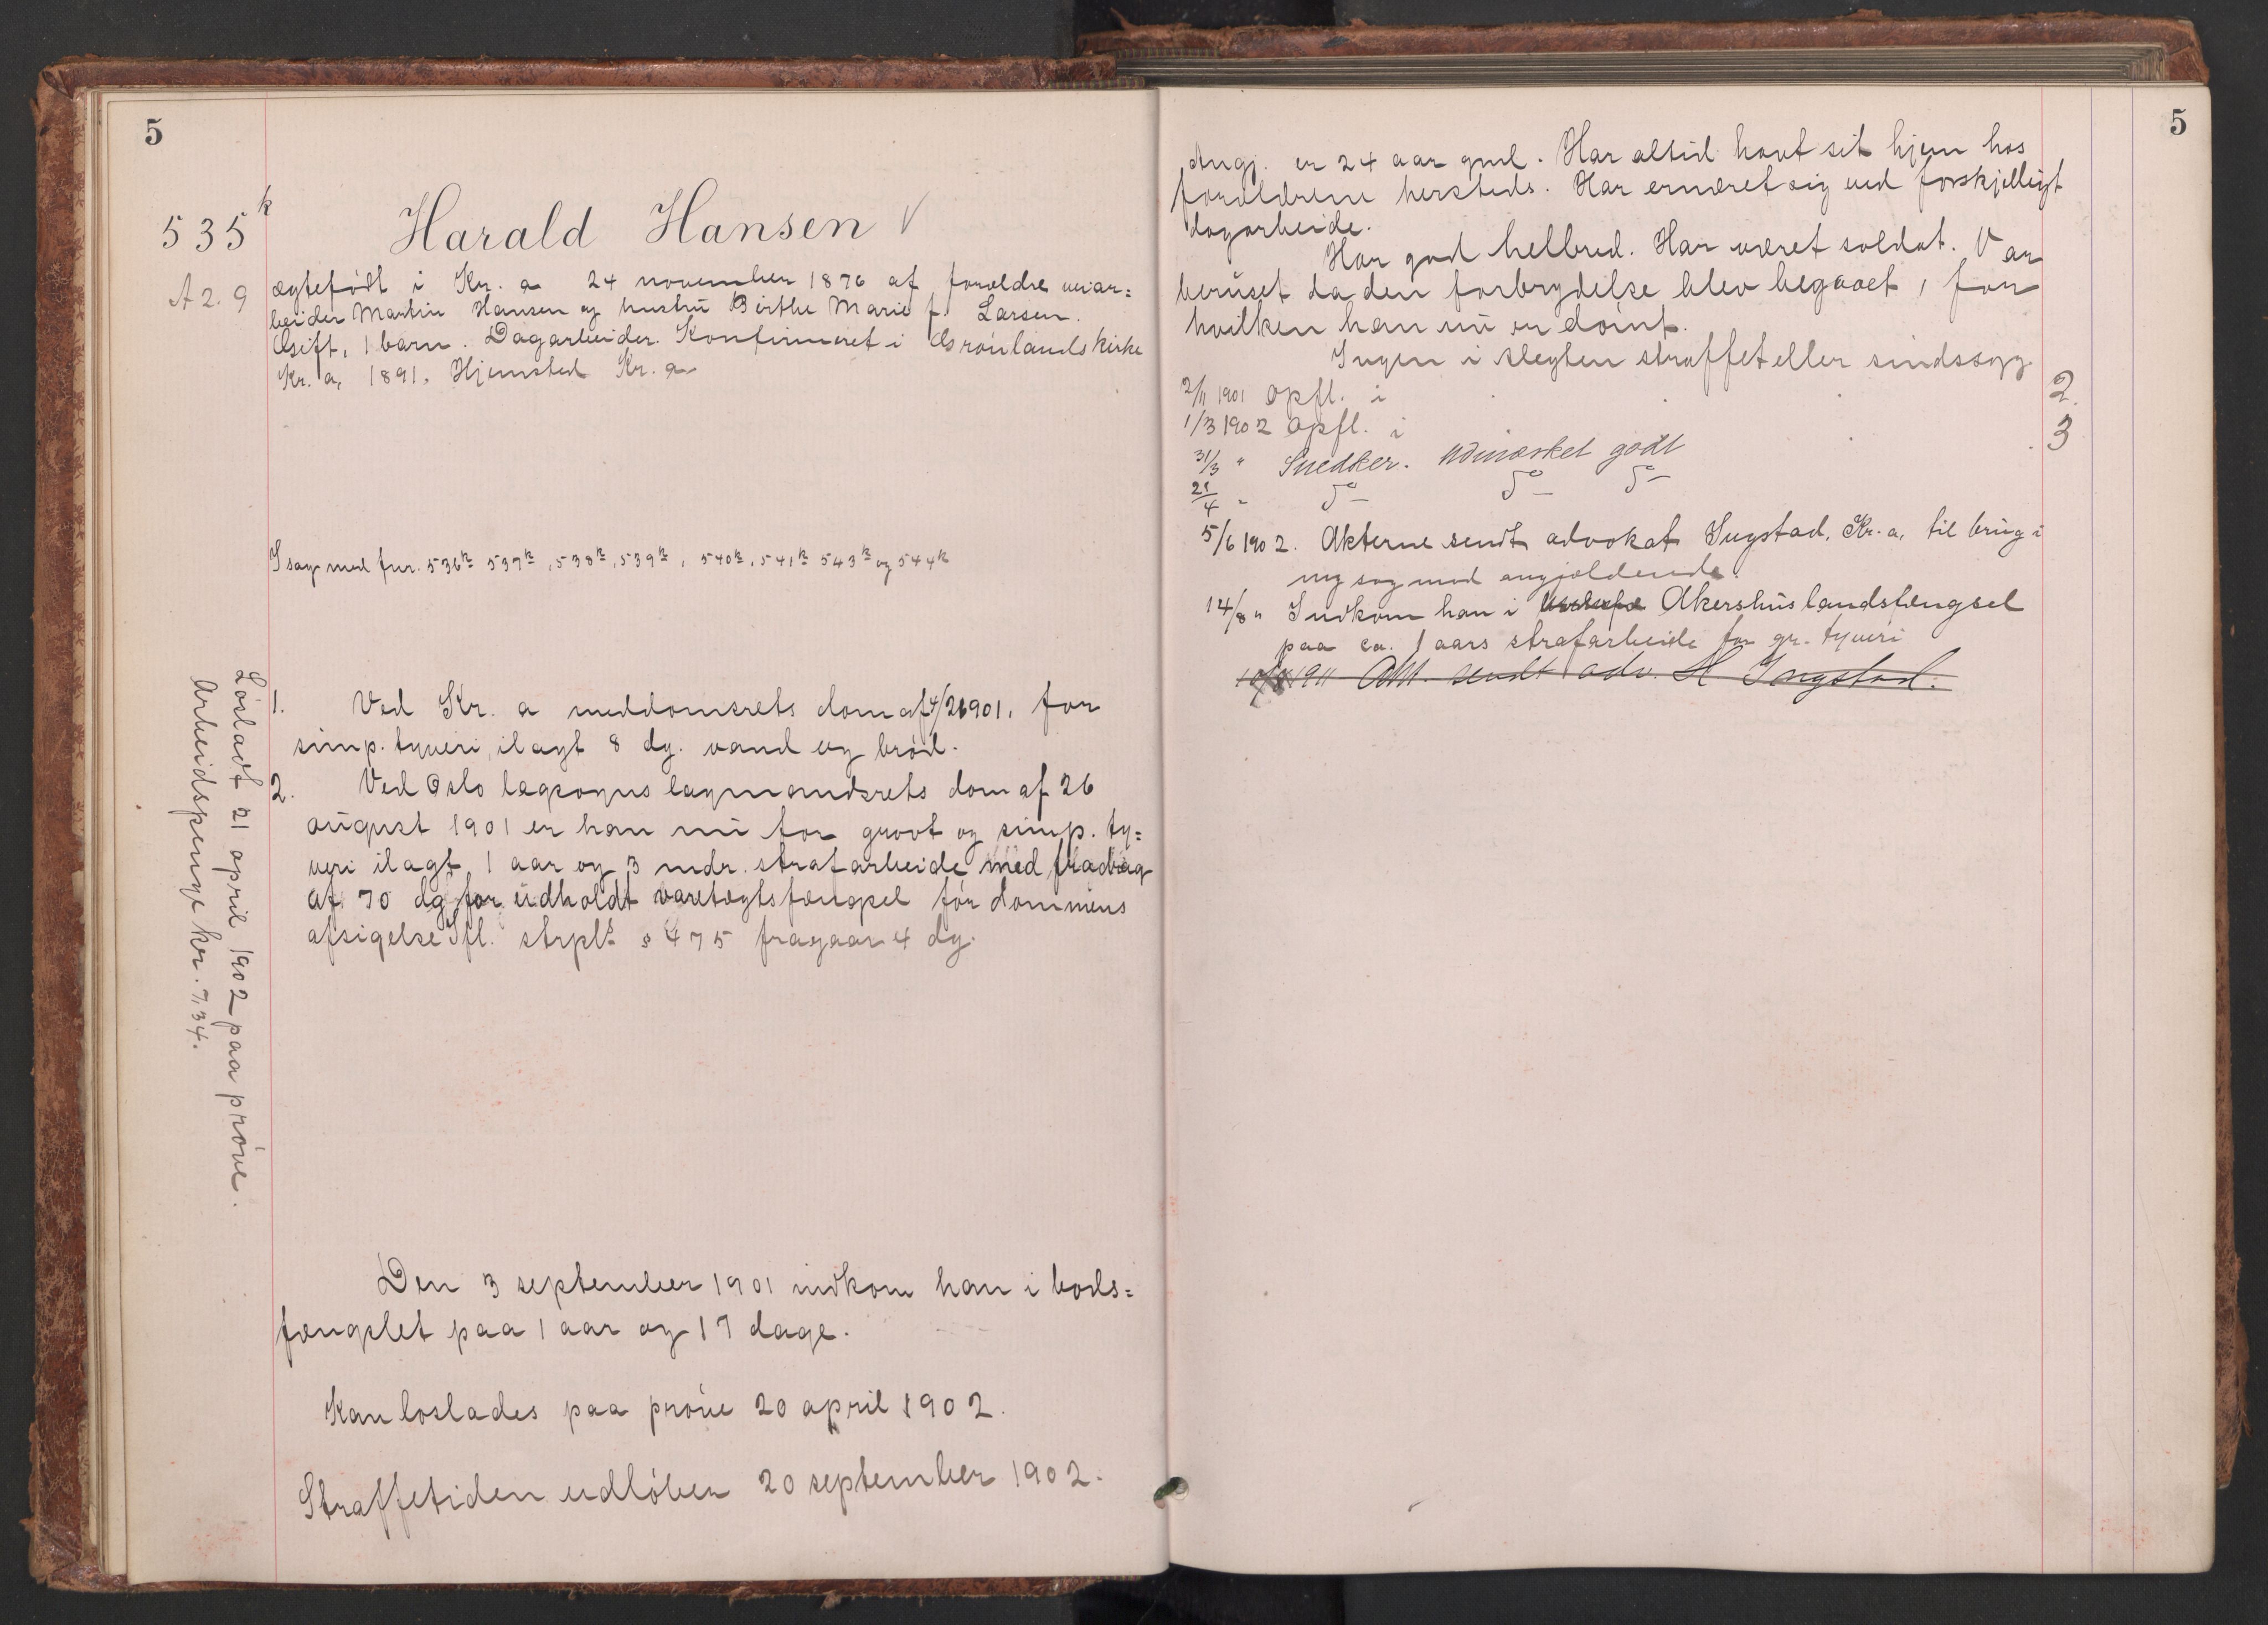 5
535k
A 2. 9
Harald Hansen V
ægtefødt i Kr. a 24 november 1876 af forældre veiar=
beider Martin Hansen og hustru Birthe Marie f. Larsen.
Gift, 1 barn. Dagarbeider. Konfirmeret i Grønlands kirke
Kr. a, 1891. Hjemsted Kr. a
I sag med fnr. 536k 537k, 538k, 539k, 540k, 541k 543k og 544k
1. Ved Kr. a meddomsrets dom af 4/2 1901, for
simp. tyveri, ilagt 8 dg. vand og brød.
2. Ved Oslo lagsogns lagmandsrets dom af 26
august 1901 er han nu for grovt og simp. ty=
veri ilagt 1 aar og 3 mdr. strafarbeide med fradrag
af 70 dg. for udholdt varetægtsfængsel før dommens
afsigelse Ifl. strpl. § 475 fragaar 4 dg.
Løsladt 21 april 1902 paa prøve.
Arbeidspenge kr. 7,34.
Den 3 september 1901 indkom han i bods=
fængslet paa 1 aar og 17 dage.
Kan løslades paa prøve 20 april 1902.
Straffetiden udløber 20 september 1902.
5
Angj. er 24 aar gml. Har altid havt sit hjem hos
forældrene hersteds. Har ernæret sig ved forskjelligt
dagarbeide.
Har god helbred. Har været soldat. Var
beruset da den forbrydelse blev begaaet, for
hvilken han nu er dømt.
Ingen i slegten straffet eller sindssyg
2/11 1901 opfl. i 2.
1/3 1902 opfl. i 3
31/3 " Snedker. udmærket godt
21/4 " do do do
5/6 1902. Akterne sendt advokat Ingstad, Kr. a, til brug i
ny sag mod angjældende.
14/8 " Indkom han i Akershus landsfængsel
paa ca. 1 aars strafarbeide for gr. tyveri
1911 Akt. sendt adv. H Ingstad.